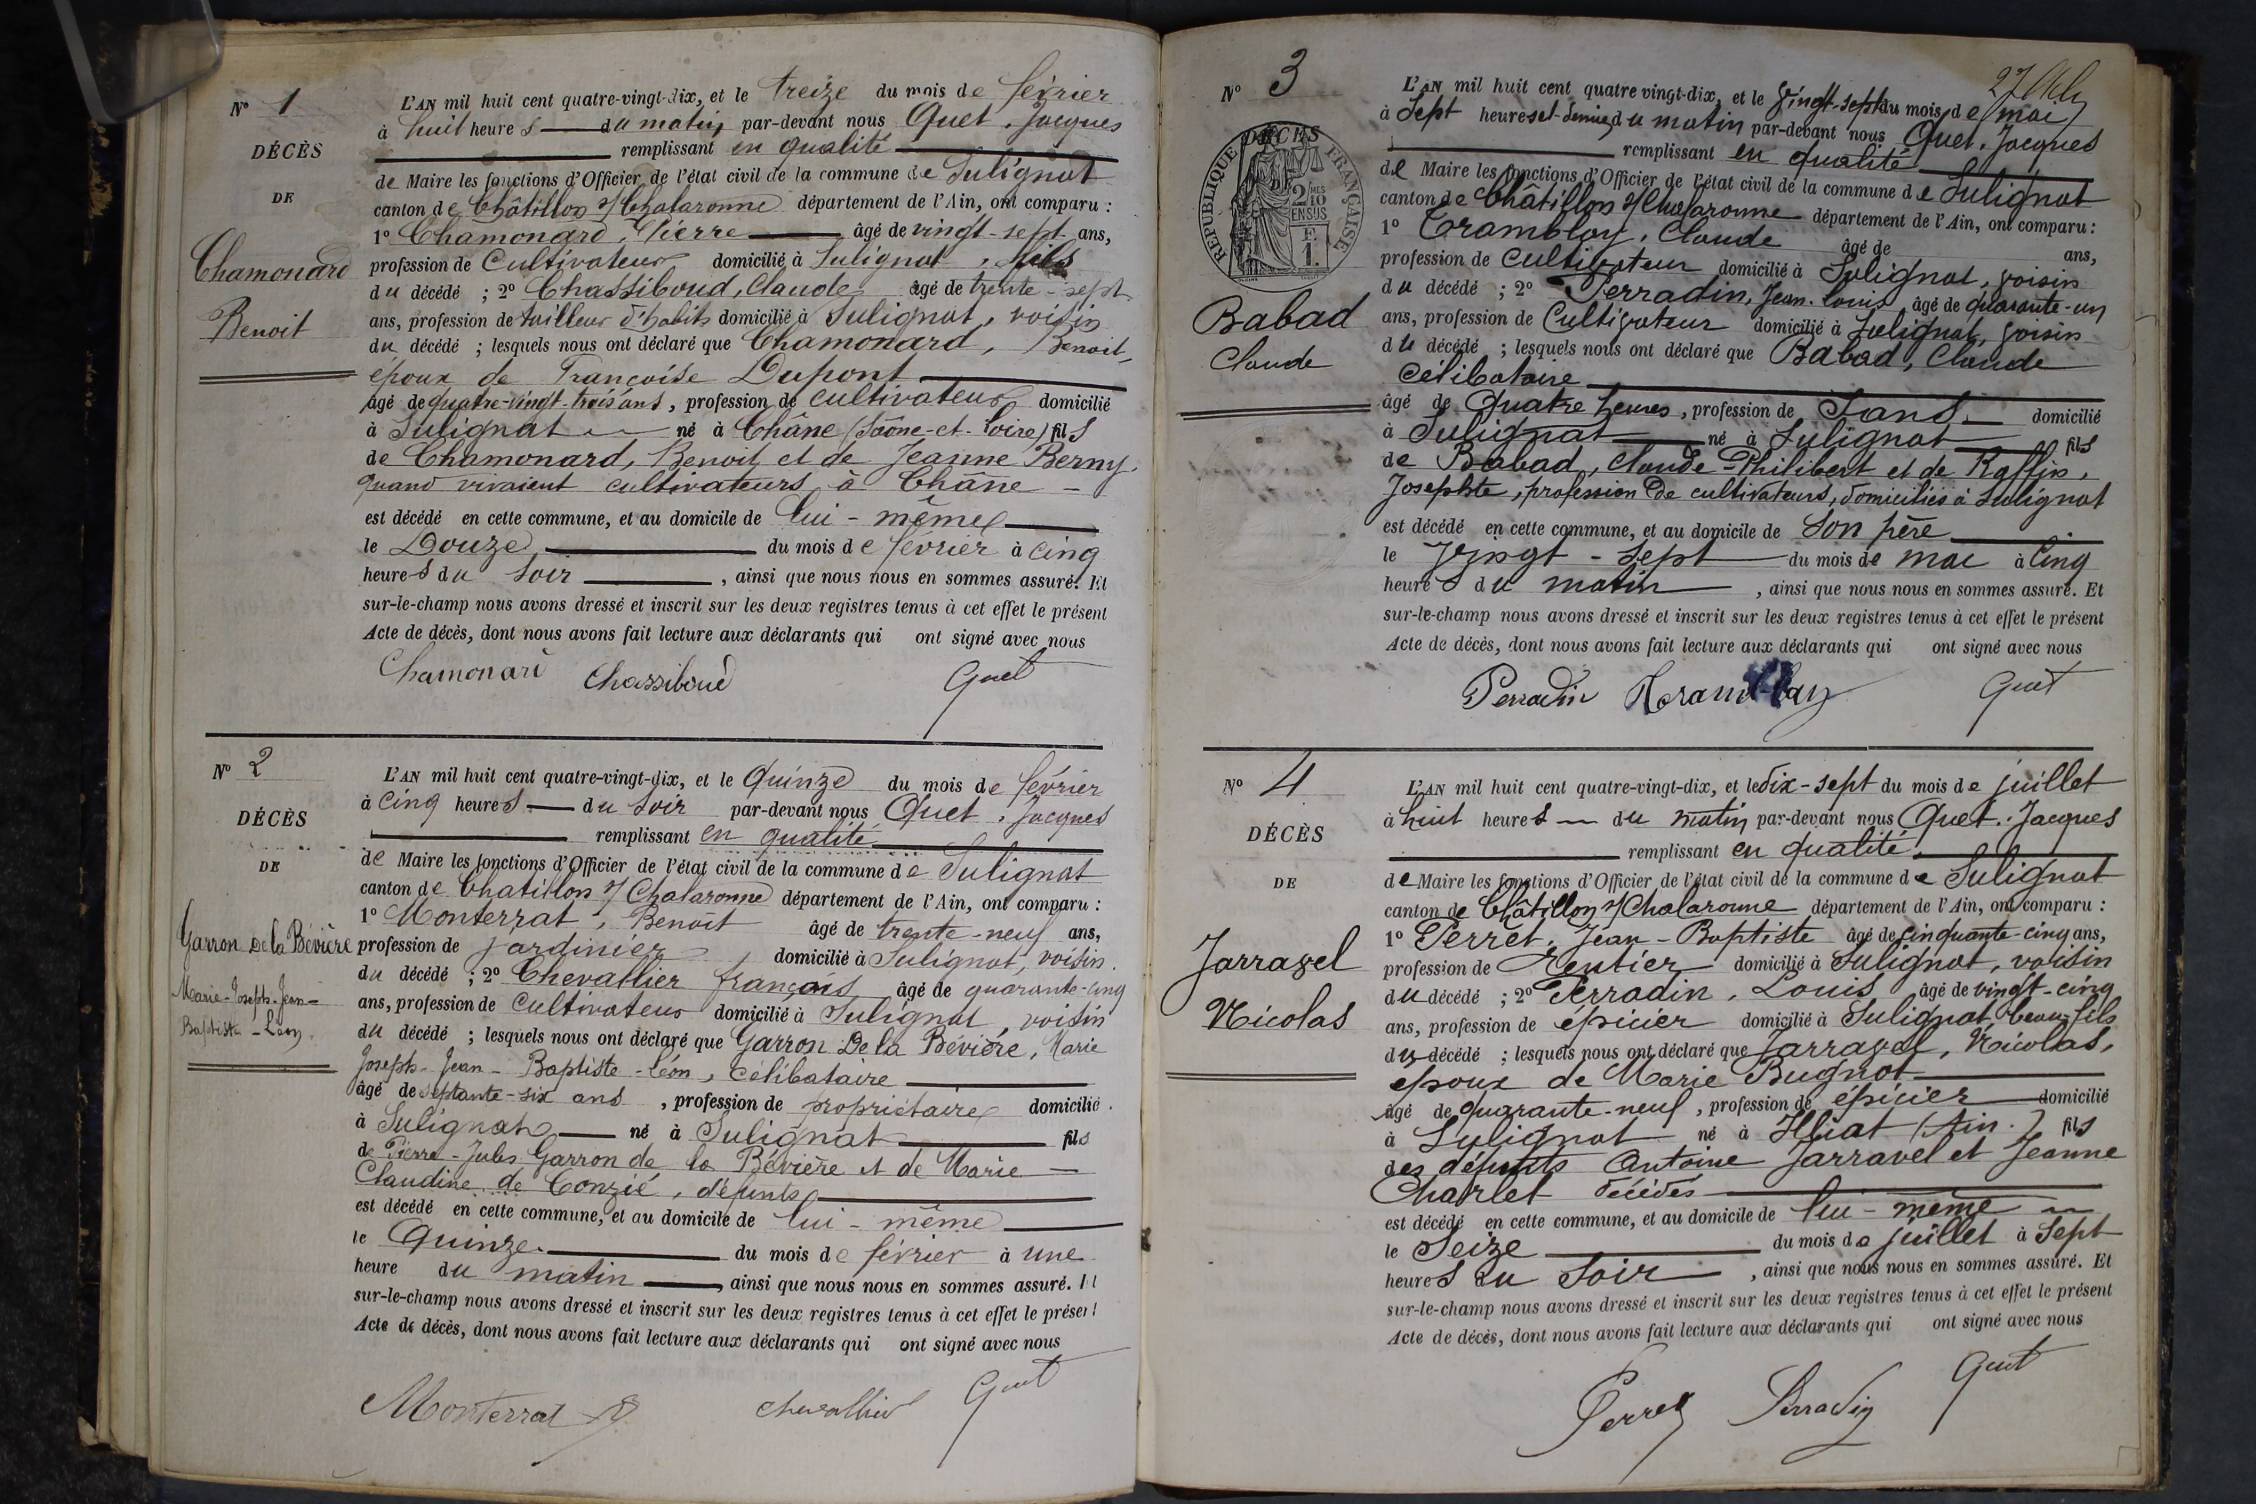 N° 1
DÉCÈS
DE
Chamonard
Benoit
L'AN mil huit cent quatre-vingt-dix, et le treize du mois de février
à huit heures du matin par-devant nous Quet, Jacques
remplissant en qualité
de Maire les fonctions d'Officier de l'état civil de la commune de Sulignat
canton de Châtillon s/ Chalaronne département de l'Ain, ont comparu :
1° Chamonard, Pierre âgé de vingt-sept ans,
profession de Cultivateur domicilié à Sulignat, fils
du décédé ; 2° Chassiboud, Claude âgé de trente-sept
ans, profession de tailleur d'habits domicilié à Sulignat, voisin
du décédé ; lesquels nous ont déclaré que Chamonard, Benoit,
époux de Françoise Dupont
âgé de quatre-vingt-trois ans, profession de cultivateur domicilié
à Sulignat né à Châne (Saône-et-Loire) fils
de Chamonard, Benoit et de Jeanne Berny,
quand vivaient cultivateurs à Châne
est décédé en cette commune, et au domicile de lui-même
le Douze du mois de février à cinq
heures du soir, ainsi que nous nous en sommes assuré. Et
sur-le-champ nous avons dressé et inscrit sur les deux registres tenus à cet effet le présent
Acte de décès, dont nous avons fait lecture aux déclarants qui ont signé avec nous
Chamonard Chassiboud Quet
N° 2
DÉCÈS
DE
Garron De la Bévière
Marie-Joseph-Jean-
Baptiste-Léon
L'AN mil huit cent quatre-vingt-dix, et le Quinze du mois de février
à cinq heures du soir par-devant nous Quet, Jacques
remplissant en qualité
de Maire les fonctions d'Officier de l'état civil de la commune de Sulignat
canton de Chatillon s/ Chalaronne département de l'Ain, ont comparu :
1° Monterrat, Benoit âgé de trente-neuf ans,
profession de jardinier domicilié à Sulignat, voisin
du décédé ; 2° Chevallier françois âgé de quarante-cinq
ans, profession de Cultivateur domicilié à Sulignat, voisin
du décédé ; lesquels nous ont déclaré que Garron De la Bévière, Marie
Joseph-Jean-Baptiste-Léon, célibataire
âgé de septante-six ans, profession de propriétaire domicilié
à Sulignat né à Sulignat fils
de Pierre-Jules Garron de la Bévière et de Marie
Claudine de Conzié, défunts
est décédé en cette commune, et au domicile de lui-même
le Quinze du mois de février à une
heure du matin, ainsi que nous nous en sommes assuré. Et
sur-le-champ nous avons dressé et inscrit sur les deux registres tenus à cet effet le présent
Acte de décès, dont nous avons fait lecture aux déclarants qui ont signé avec nous
Monterrat chevallier Quet
N° 3
RÉPUBLIQUE FRANÇAISE
DÉCÈS
2/10 MES
EN SUS
E.
1.
Babad
Claude
L'AN mil huit cent quatre vingt-dix, et le vingt-sept du mois de mai
à Sept heures et demie du matin par-devant nous Quet, Jacques
remplissant en qualité
de Maire les fonctions d'Officier de l'état civil de la commune de Sulignat
canton de Châtillon s/ Chalaronne département de l'Ain, ont comparu :
1° Tramblay, Claude âgé de ans,
profession de cultivateur domicilié à Sulignat, voisin
du décédé ; 2° Perradin, Jean-Louis âgé de quarante-un
ans, profession de Cultivateur domicilié à Sulignat, voisin
du décédé ; lesquels nous ont déclaré que Babad, Claude
célibataire
âgé de Quatre heures, profession de Sans domicilié
à Sulignat né à Sulignat fils
de Babad, Claude-Philibert et de Raffin,
Josephte, profession de cultivateurs, domiciliés à Sulignat
est décédé en cette commune, et au domicile de son père
le Vingt-sept du mois de mai à Cinq
heures du matin, ainsi que nous nous en sommes assuré. Et
sur-le-champ nous avons dressé et inscrit sur les deux registres tenus à cet effet le présent
Acte de décès, dont nous avons fait lecture aux déclarants qui ont signé avec nous
Perradin Tramblay Quet
N° 4
DÉCÈS
DE
Jarravel
Nicolas
L'AN mil huit cent quatre-vingt-dix, et le dix-sept du mois de juillet
à huit heures du matin par-devant nous Quet, Jacques
remplissant en qualité
de Maire les fonctions d'Officier de l'état civil de la commune de Sulignat
canton de Châtillon s/ Chalaronne département de l'Ain, ont comparu :
1° Perret, Jean-Baptiste âgé de cinquante-cinq ans,
profession de Rentier domicilié à Sulignat, voisin
du décédé ; 2° Perradin, Louis âgé de vingt-cinq
ans, profession de épicier domicilié à Sulignat beau-fils
du décédé ; lesquels nous ont déclaré que Jarravel, Nicolas,
époux de Marie Bugnot
âgé de quarante-neuf, profession de épicier domicilié
à Sulignat né à Illiat (Ain.) fils
des défunts Antoine Jarravel et Jeanne
Charlet décédés
est décédé en cette commune, et au domicile de lui-même
le Seize du mois de juillet à Sept
heures du soir, ainsi que nous nous en sommes assuré. Et
sur-le-champ nous avons dressé et inscrit sur les deux registres tenus à cet effet le présent
Acte de décès, dont nous avons fait lecture aux déclarants qui ont signé avec nous
Perret Perradin Quet